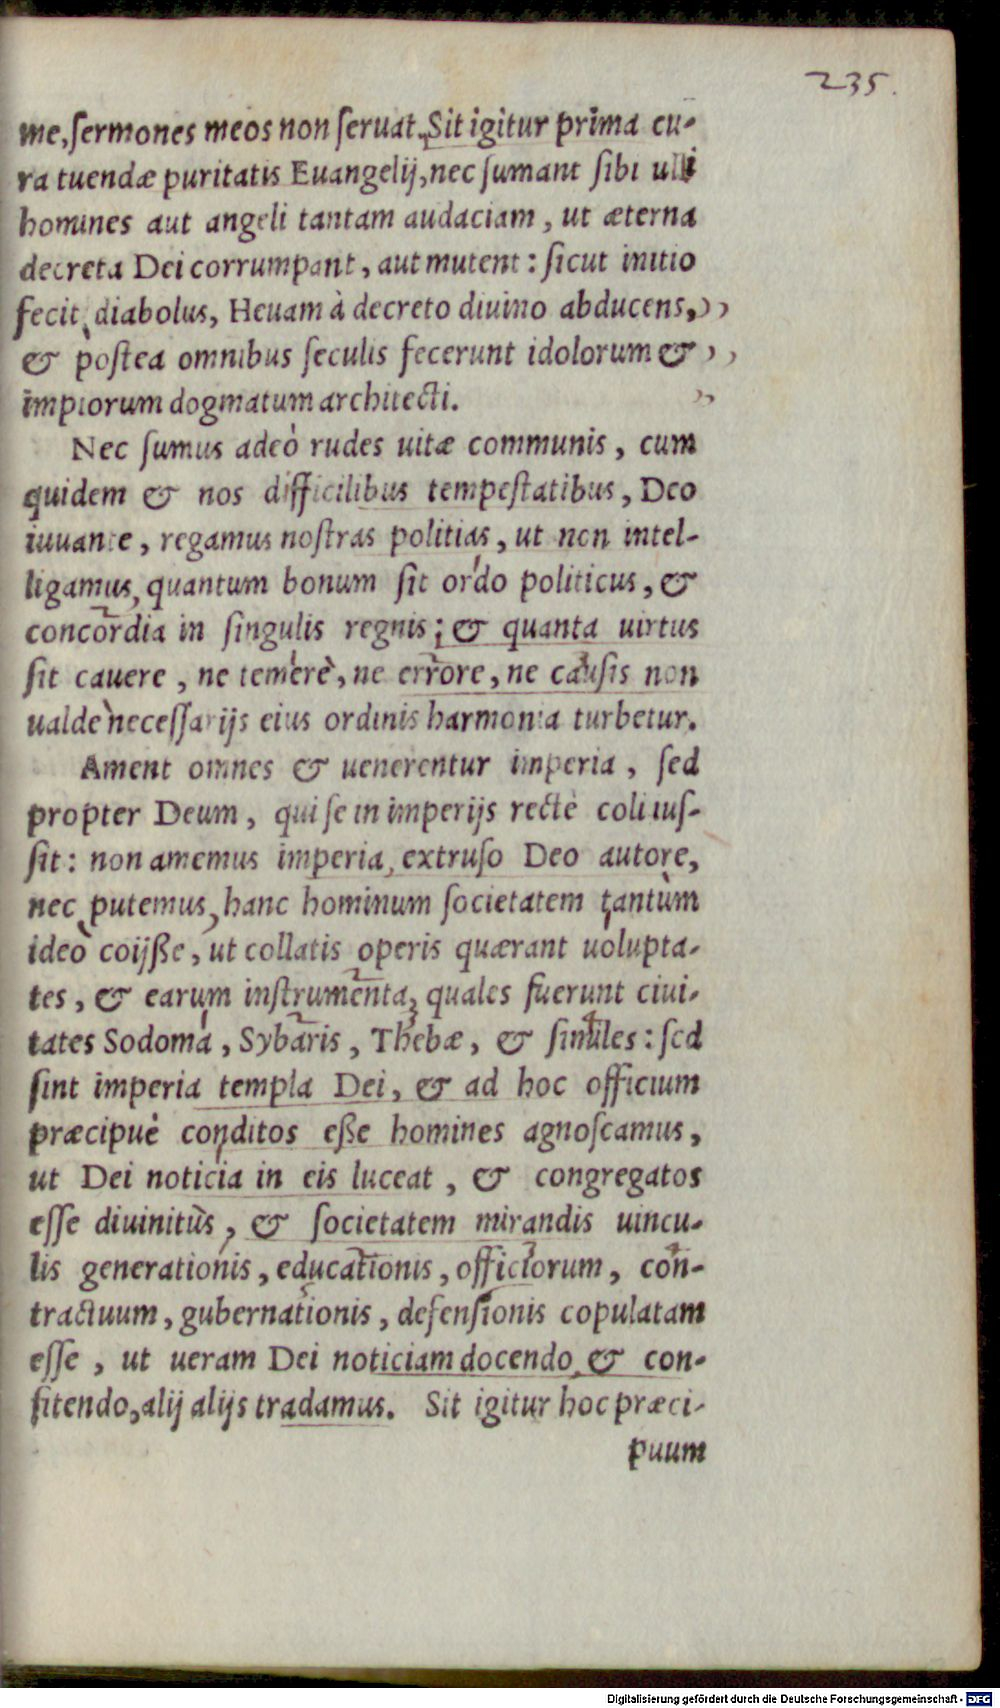 235.
me, sermones meos non seruat. Sit igitur prima cu-
ra tuendæ puritatis Euangelij, nec sumant sibi ulli
homines aut angeli tantam audaciam, ut æterna
decreta Dei corrumpant, aut mutent: sicut initio
fecit diabolus, Heuam à decreto diuino abducens,
& postea omnibus seculis fecerunt idolorum &
impiorum dogmatum architecti.
Nec sumus adeò rudes uitæ communis, cum
quidem & nos difficilibus tempestatibus, Deo
iuuante, regamus nostras politias, ut non intel-
ligamus, quantum bonum sit ordo politicus, &
concordia in singulis regnis; & quanta uirtus
sit cauere, ne temerè, ne errore, ne causis non
ualde necessarijs eius ordinis harmonia turbetur.
Ament omnes & uenerentur imperia, sed
propter Deum, qui se in imperijs rectè coli ius-
sit: non amemus imperia, extruso Deo autore,
nec putemus, hanc hominum societatem tantùm
ideò coijße, ut collatis operis quærant uolupta-
tes, & earum instrumenta, quales fuerunt ciui-
tates Sodoma, Sybaris, Thebæ, & similes: sed
sint imperia templa Dei, & ad hoc officium
præcipuè conditos eße homines agnoscamus,
ut Dei noticia in eis luceat, & congregatos
esse diuinitùs, & societatem mirandis uincu-
lis generationis, educationis, officiorum, con-
tractuum, gubernationis, defensionis copulatam
esse, ut ueram Dei noticiam docendo & con-
fitendo, alij alijs tradamus. Sit igitur hoc præci-
puum
Digitalisierung gefördert durch die Deutsche Forschungsgemeinschaft - DFG